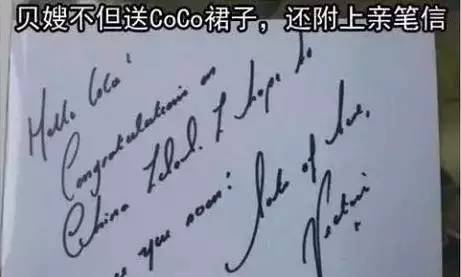 贝嫂不但送CoCo裙子，还附上亲笔信
Hello CoCo!
Congratulations on
China Idol. I hope to
see you soon!
Lots of love,
Victori